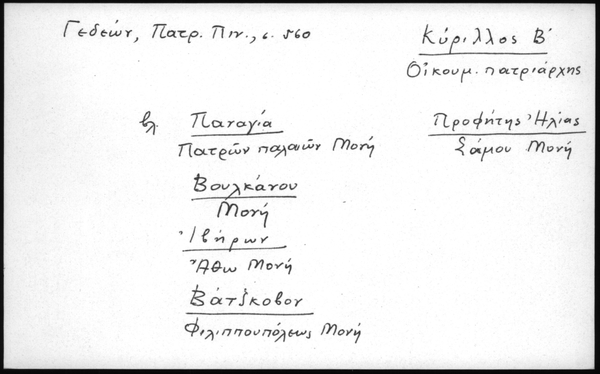 Γεδεών, Πατρ. Πιν., σ. 560
Κύριλλος Β΄
Οἰκουμ. πατριάρχης
βλ. Παναγία
Πατρῶν παλαιῶν Μονή
Βουλκάνου
Μονή
Ἰβήρων
Ἄθω Μονή
Βάτζκοβον
Φιλιππουπόλεως Μονή
Προφήτης Ἠλίας
Σάμου Μονή